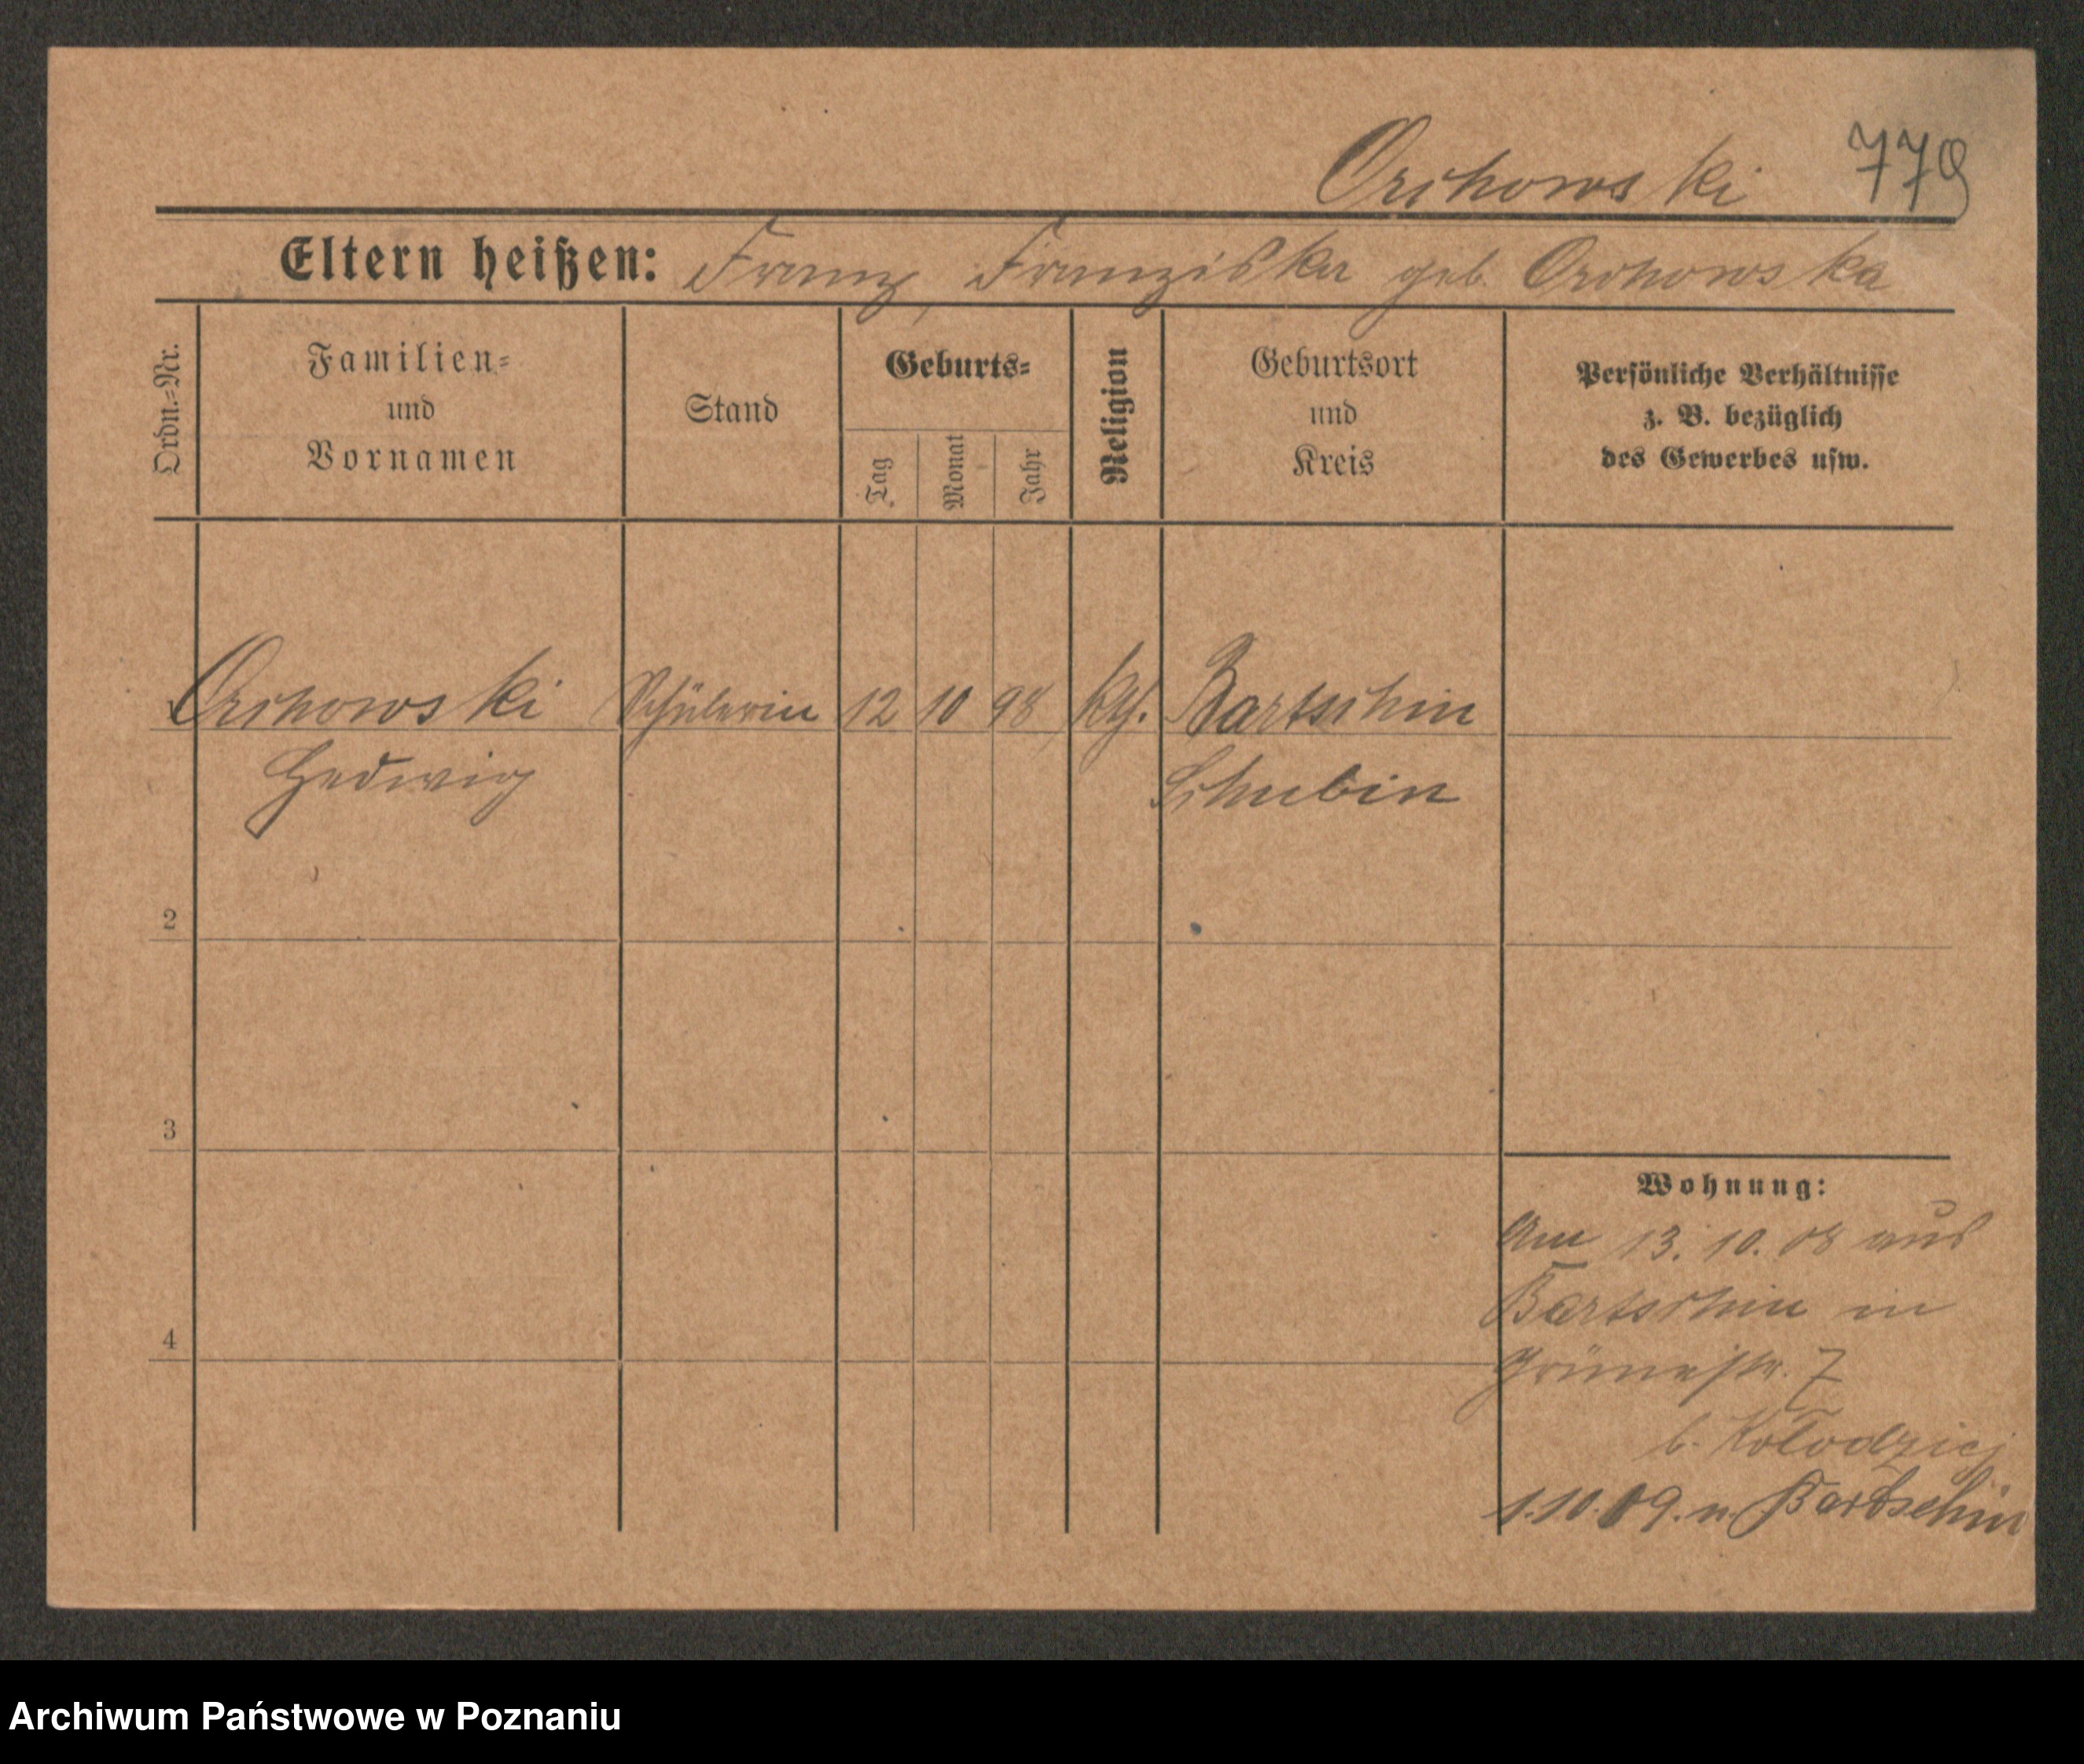 Orchowski 779
Eltern heißen: Franz, Franziska geb. Orchowska
Ordn.=Nr.
Familien=
und
Vornamen
Stand
Geburts=
Tag
Monat
Jahr
Religion
Geburtsort
und
Kreis
Persönliche Verhältnisse
z. B. bezüglich
des Gewerbes usw.
Orchowski Schülerin 12 10 98 kth. Bartschin
Hedwig Schubin
2
3
4
Wohnung:
Am 13. 10. 08 aus
Bartschin in
Grünestr. 7
b. Kołodziej
1.10.09. n. Bartschin
Archiwum Państwowe w Poznaniu